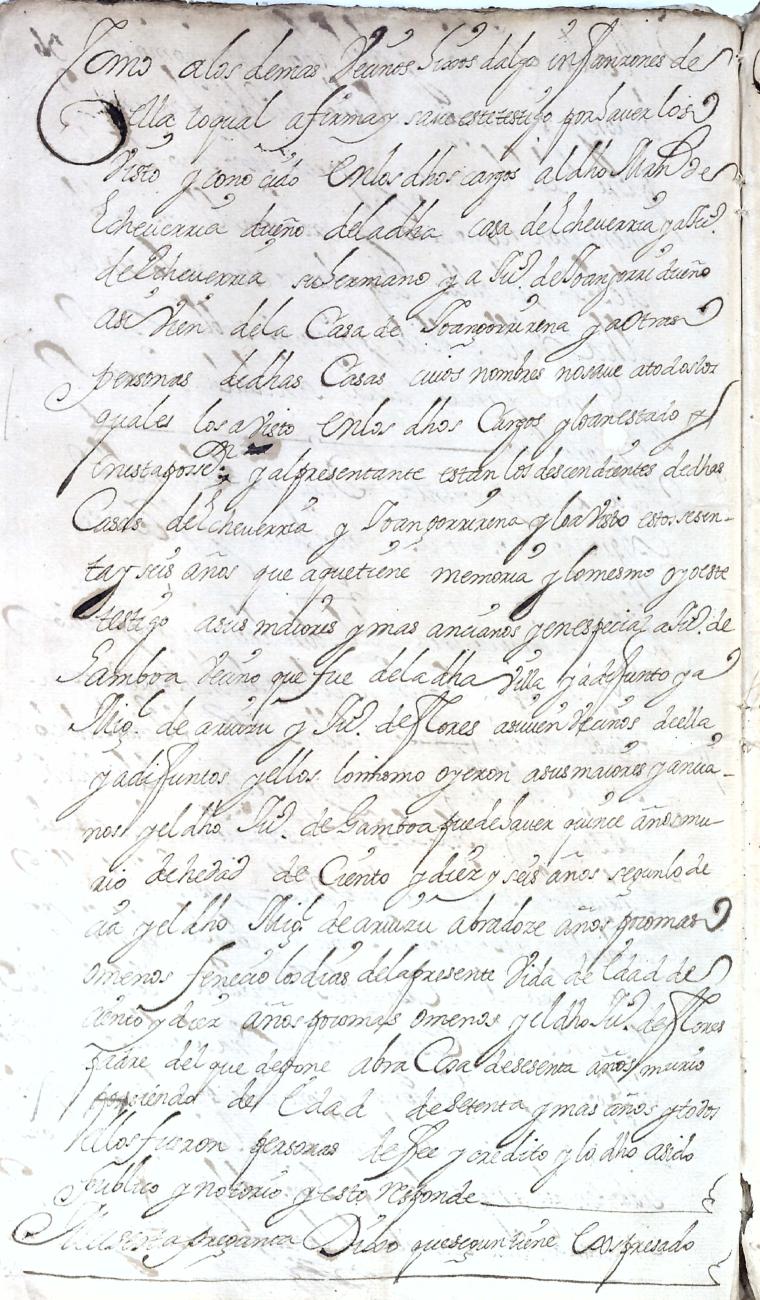 Como a los demas Vecinos hixos dalgo infanzones de
ella lo qual afirma y save este testigo por haver los
Visto y conocido En los dhos cargos al dho Mrn de
Echeverria dueño de la dha casa de Echeverria y a Ju.º
de Echeverria su hermano y a Ju.º de Joangorri dueño
asi Vien de la Casa de Joangorrirena y a Otras
personas de dhas Casas cuios nombres no save a todos los
quales los a Visto En los dhos Cargos y lo an estado
y al presentante estan los descendientes de dhas
Casas de Echeverria y Joangorrirena y lo a Visto estos sesen-
ta y seis años que a que tiene memoria y lo mesmo oyo este
testigo a sus maiores y mas ancianos y en especial a Ju.º de
Gamboa Vecino que fue de la dha Villa ya difunto y a
Mig.l de y Ju.º de Flores asi vien Vecinos de ella
ya difuntos y ellos lo mismo oyeron a sus maiores y ancia-
nos y el dho Ju.º de Gamboa puede haver quince años mu-
rio de hedad de Ciento y diez y seis años segun lo de
cia y el dho Mig.l de abra doze años poco mas
o menos fenecio los dias de la presente Vida de Edad de
ciento y diez años poco mas o menos y el dho Ju.º de Flores
Padre del que depone abra Cosa de sesenta años murio
siendo de Edad de setenta y mas años y todos
Ellos fueron personas de fee y credito y lo dho a sido
publico y notorio y esto Responde
A la sexta pregunta Dixo que segun tiene Expresado